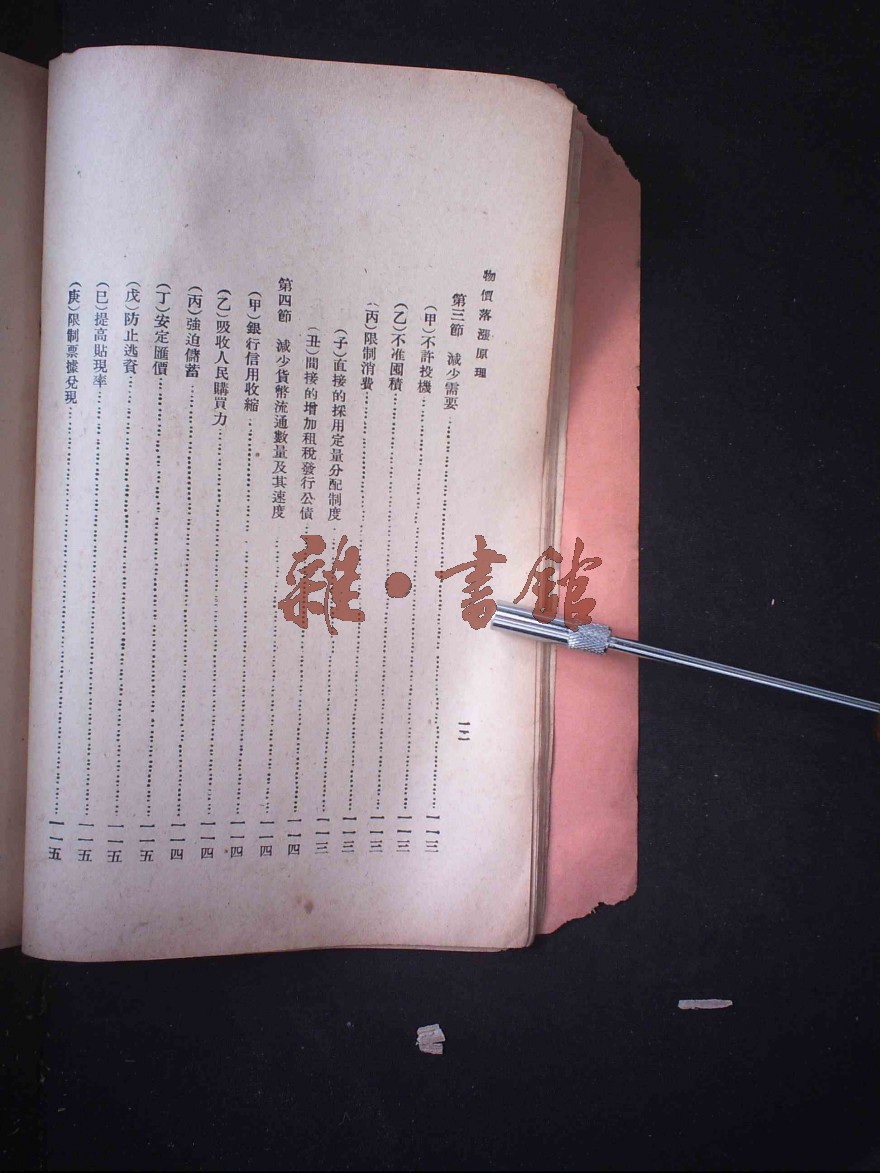 物價落漲原理
一二
第三節　減少需要……一一三
(甲)不許投機……一一三
(乙)不准囤積……一一三
(丙)限制消費……一一三
(子)直接的採用定量分配制度……一一三
(丑)間接的增加租稅發行公債……一一四
第四節　減少貨幣流通數量及其速度……一一四
(甲)銀行信用收縮……一一四
(乙)吸收人民購買力……一一四
(丙)強迫儲蓄……一一四
(丁)安定匯價……一一五
(戊)防止逃資……一一五
(巳)提高貼現率……一一五
(庚)限制票據兌現……一一五
雜·書館